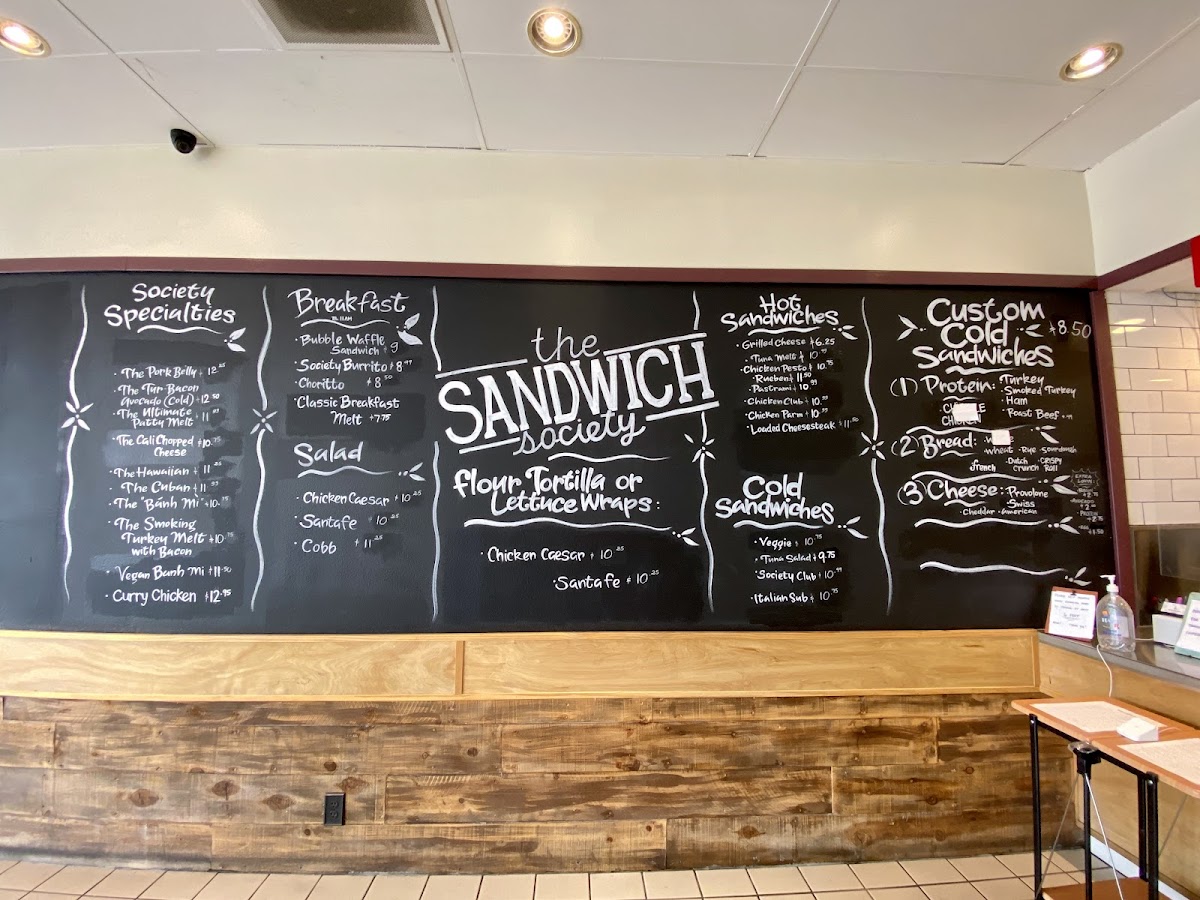 Society
Specialties
· The Pork Belly + 12.25
· The Tur-Bacon
Avocado (Cold) + 12.50
· The Ultimate
Patty Melt + 11
· The Cali Chopped
Cheese + 10.75
· The Hawaiian + 11.25
· The Cuban + 11
· The "Bánh Mi" + 10
· The Smoking
Turkey Melt + 10.75
with Bacon
· Vegan Banh Mi + 11.50
· Curry Chicken + 12.95
Breakfast
· Bubble Waffle
Sandwich + 9
· Society Burrito + 8
· Choritto + 8.50
· Classic Breakfast
Melt + 7.75
Salad
· Chicken Caesar + 10.25
· Santafe + 10.25
· Cobb + 11.25
the
SANDWICH
society
flour Tortilla or
Lettuce Wraps:
· Chicken Caesar + 10.25
· Santafe + 10.25
Hot
Sandwiches
· Grilled Cheese + 6.25
· Tuna Melt + 10
· Chicken Pesto + 10.75
· Rueben + 11.50
· Pastrami + 10.99
· Chicken Club + 10
· Chicken Parm + 10
· Loaded Cheesesteak + 11.50
Cold
Sandwiches
· Veggie + 10.75
· Tuna Salad + 9.75
· Society Club + 10
· Italian Sub + 10.75
Custom
Cold +8.50
Sandwiches
(1) Protein: · Turkey
· Smoked Turkey
· Ham
· Roast Beef
CHICKEN
(2) Bread:
wheat · Rye · sourdough
french · Dutch Crunch · CRISPY Roll
(3) Cheese: · Provolone
· Swiss
· Cheddar · American